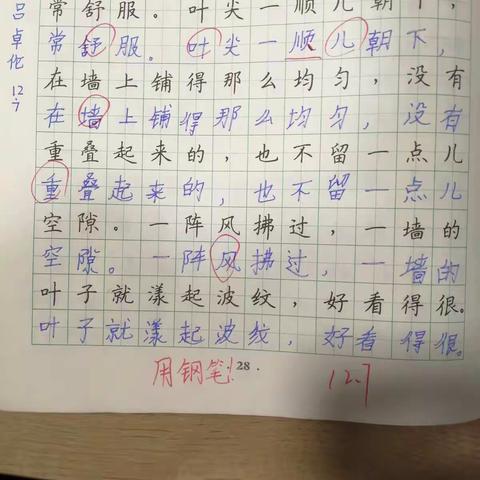 常舒服。叶尖一顺儿朝下,
常舒服。叶尖一顺儿朝下,
在墙上铺得那么均匀,没有
在墙上铺得那么均匀,没有
重叠起来的,也不留一点儿
重叠起来的,也不留一点儿
空隙。一阵风拂过,一墙的
空隙。一阵风拂过,一墙的
叶子就漾起波纹,好看得很。
叶子就漾起波纹,好看得很。
用钢笔!
28.
12.7
吕卓伦 12.7